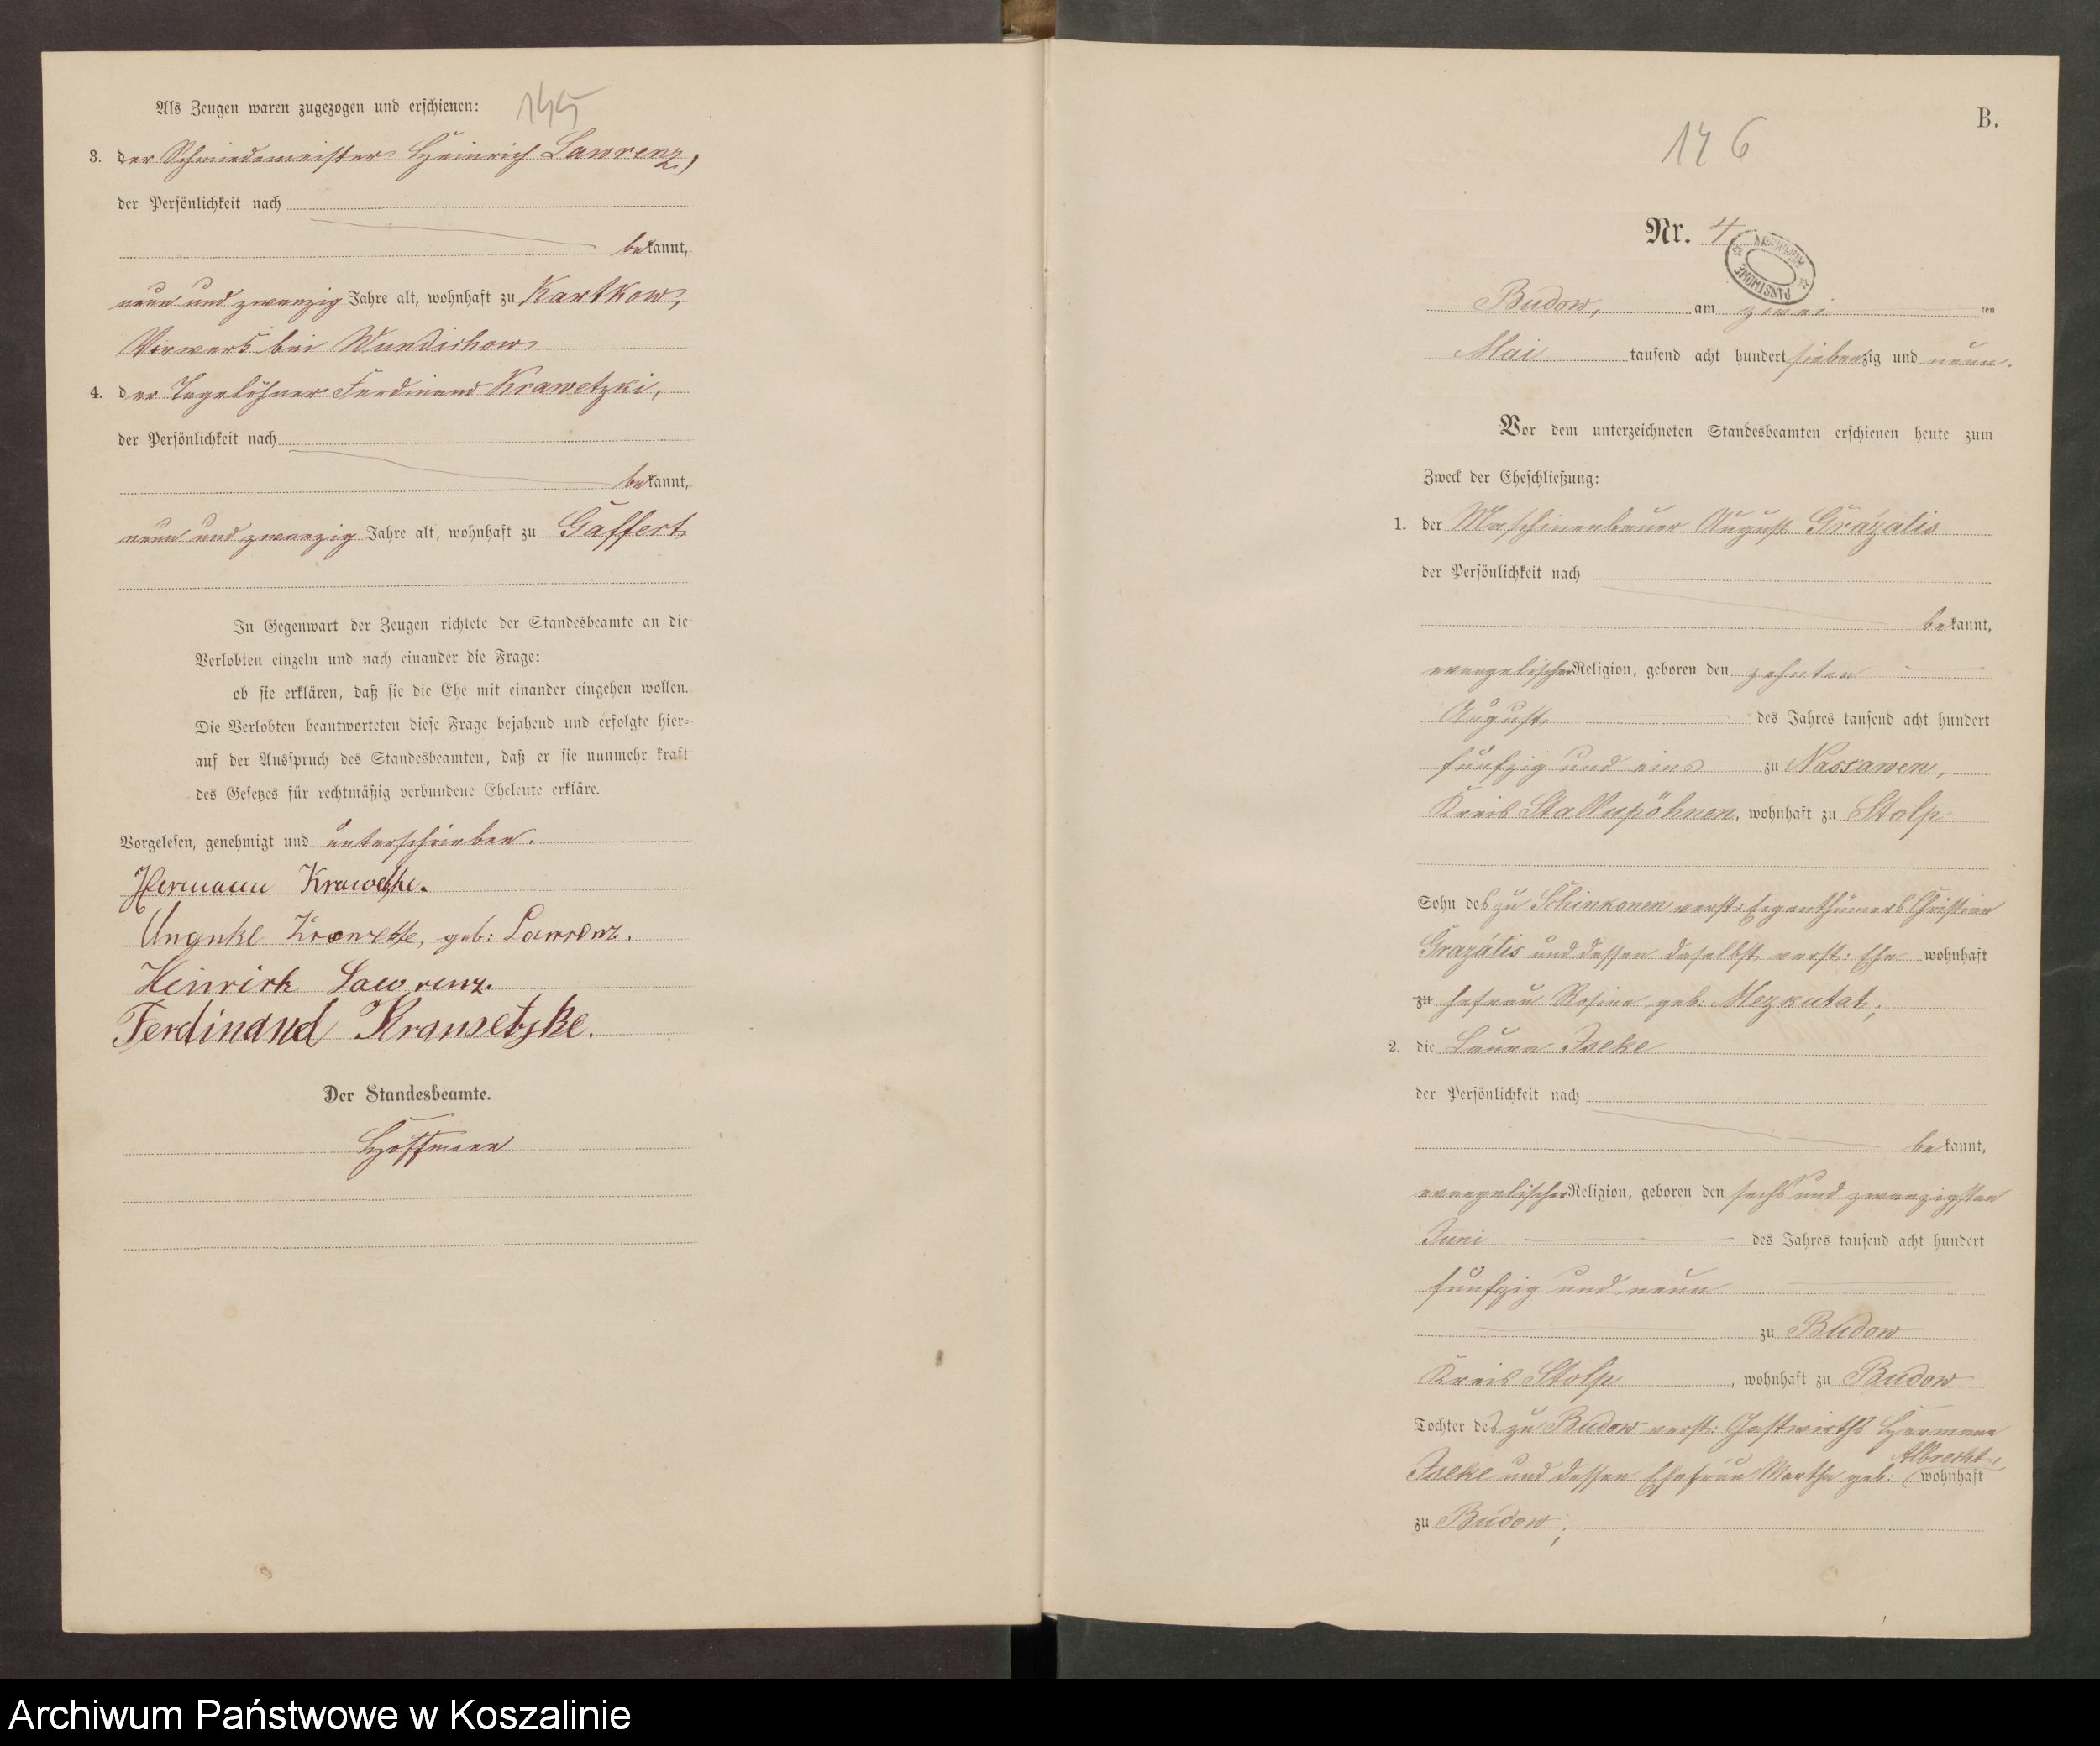 145
Als Zeugen waren zugezogen und erschienen:
3. der Schmiedemeister Heinrich Lawrenz,
der Persönlichkeit nach
bekannt,
neun und zwanzig Jahre alt, wohnhaft zu Kartkow,
Vorwerk bei Wundichow
4. der Tagelöhner Ferdinand Krawetzki,
der Persönlichkeit nach
bekannt,
neun und zwanzig Jahre alt, wohnhaft zu Gaffert
In Gegenwart der Zeugen richtete der Standesbeamte an die
Verlobten einzeln und nach einander die Frage:
ob sie erklären, daß sie die Ehe mit einander eingehen wollen.
Die Verlobten beantworteten diese Frage bejahend und erfolgte hier-
auf der Ausspruch des Standesbeamten, daß er sie nunmehr kraft
des Gesetzes für rechtmäßig verbundene Eheleute erkläre.
Vorgelesen, genehmigt und unterschrieben.
Hermann
geb: Lawrenz.
Heinrich Lawrenz.
Ferdinand Krawetzke.
Der Standesbeamte.
Hoffmann
B.
146
Nr. 4
Budow, am zwei ten
Mai tausend acht hundert siebenzig und neun.
Vor dem unterzeichneten Standesbeamten erschienen heute zum
Zweck der Eheschließung:
1. der Maschinenbauer August Grazatis
der Persönlichkeit nach
bekannt,
evangelischer Religion, geboren den zehnten
August des Jahres tausend acht hundert
fünfzig und eins zu Nassawen,
Kreis Stallupöhnen, wohnhaft zu Stolp
Sohn des zu Schinkonen verst: Eigenthümers Christian
Grazatis und dessen daselbst verst: Ehe wohnhaft
zu hefrau Rosine geb: Mezkutat,
2. die Laura Iseke
der Persönlichkeit nach
bekannt,
evangelischer Religion, geboren den sechs und zwanzigsten
Juni des Jahres tausend acht hundert
fünfzig und neun
zu Budow
Kreis Stolp, wohnhaft zu Budow
Tochter des zu Budow verst: Gastwirths Hermann
Albrecht,
Iseke und dessen Ehefrau Martha geb: wohnhaft
zu Budow,
Archiwum Państwowe w Koszalinie